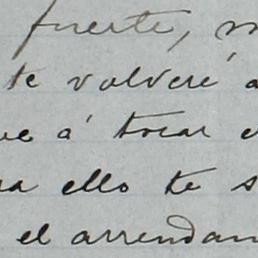 fuerte,
te volveré
á tocar
ello te
el arrendam